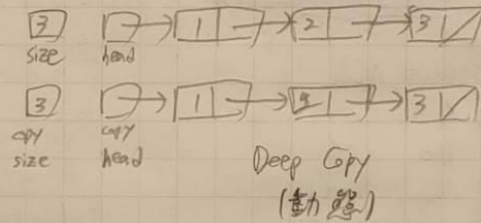 3 1 2 3
size head
3 1 2 3
copy size copy head
Deep Copy
(動態)